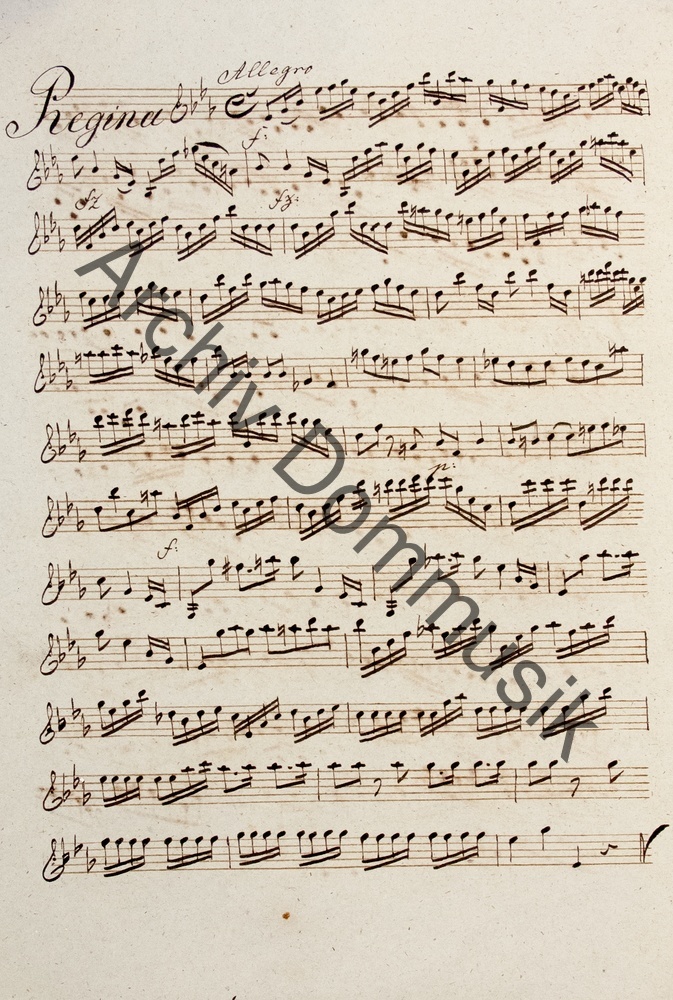 Allegro
Regina
f:
fz fz:
p:
f:
Archiv Dommusik